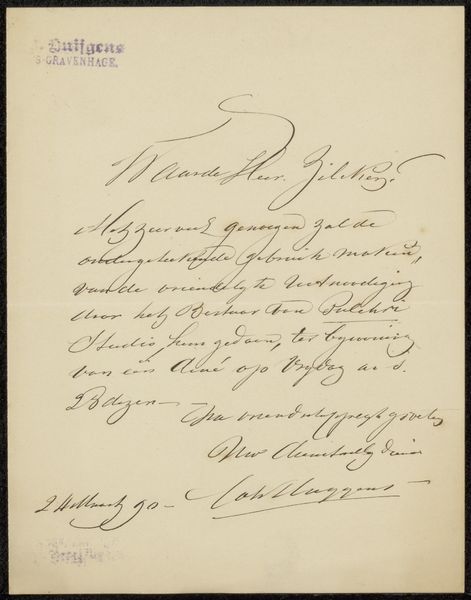 Huijgens
S GRAVENHAGE.
Waarde Heer Zilcken.
Met zeer veel genoegen zal de
ondergeteekende gebruik maken,
van de vriendelyke uitnoodiging
door het Bestuur van Pulchri
Studio, hem gedaan, ter bywoning
van een diné op Vrydag a.s.
28 dezer —
Na vriendschappelyke groeten
Uw dienstwillige dienaar
Huygens
24 Maart 90 —